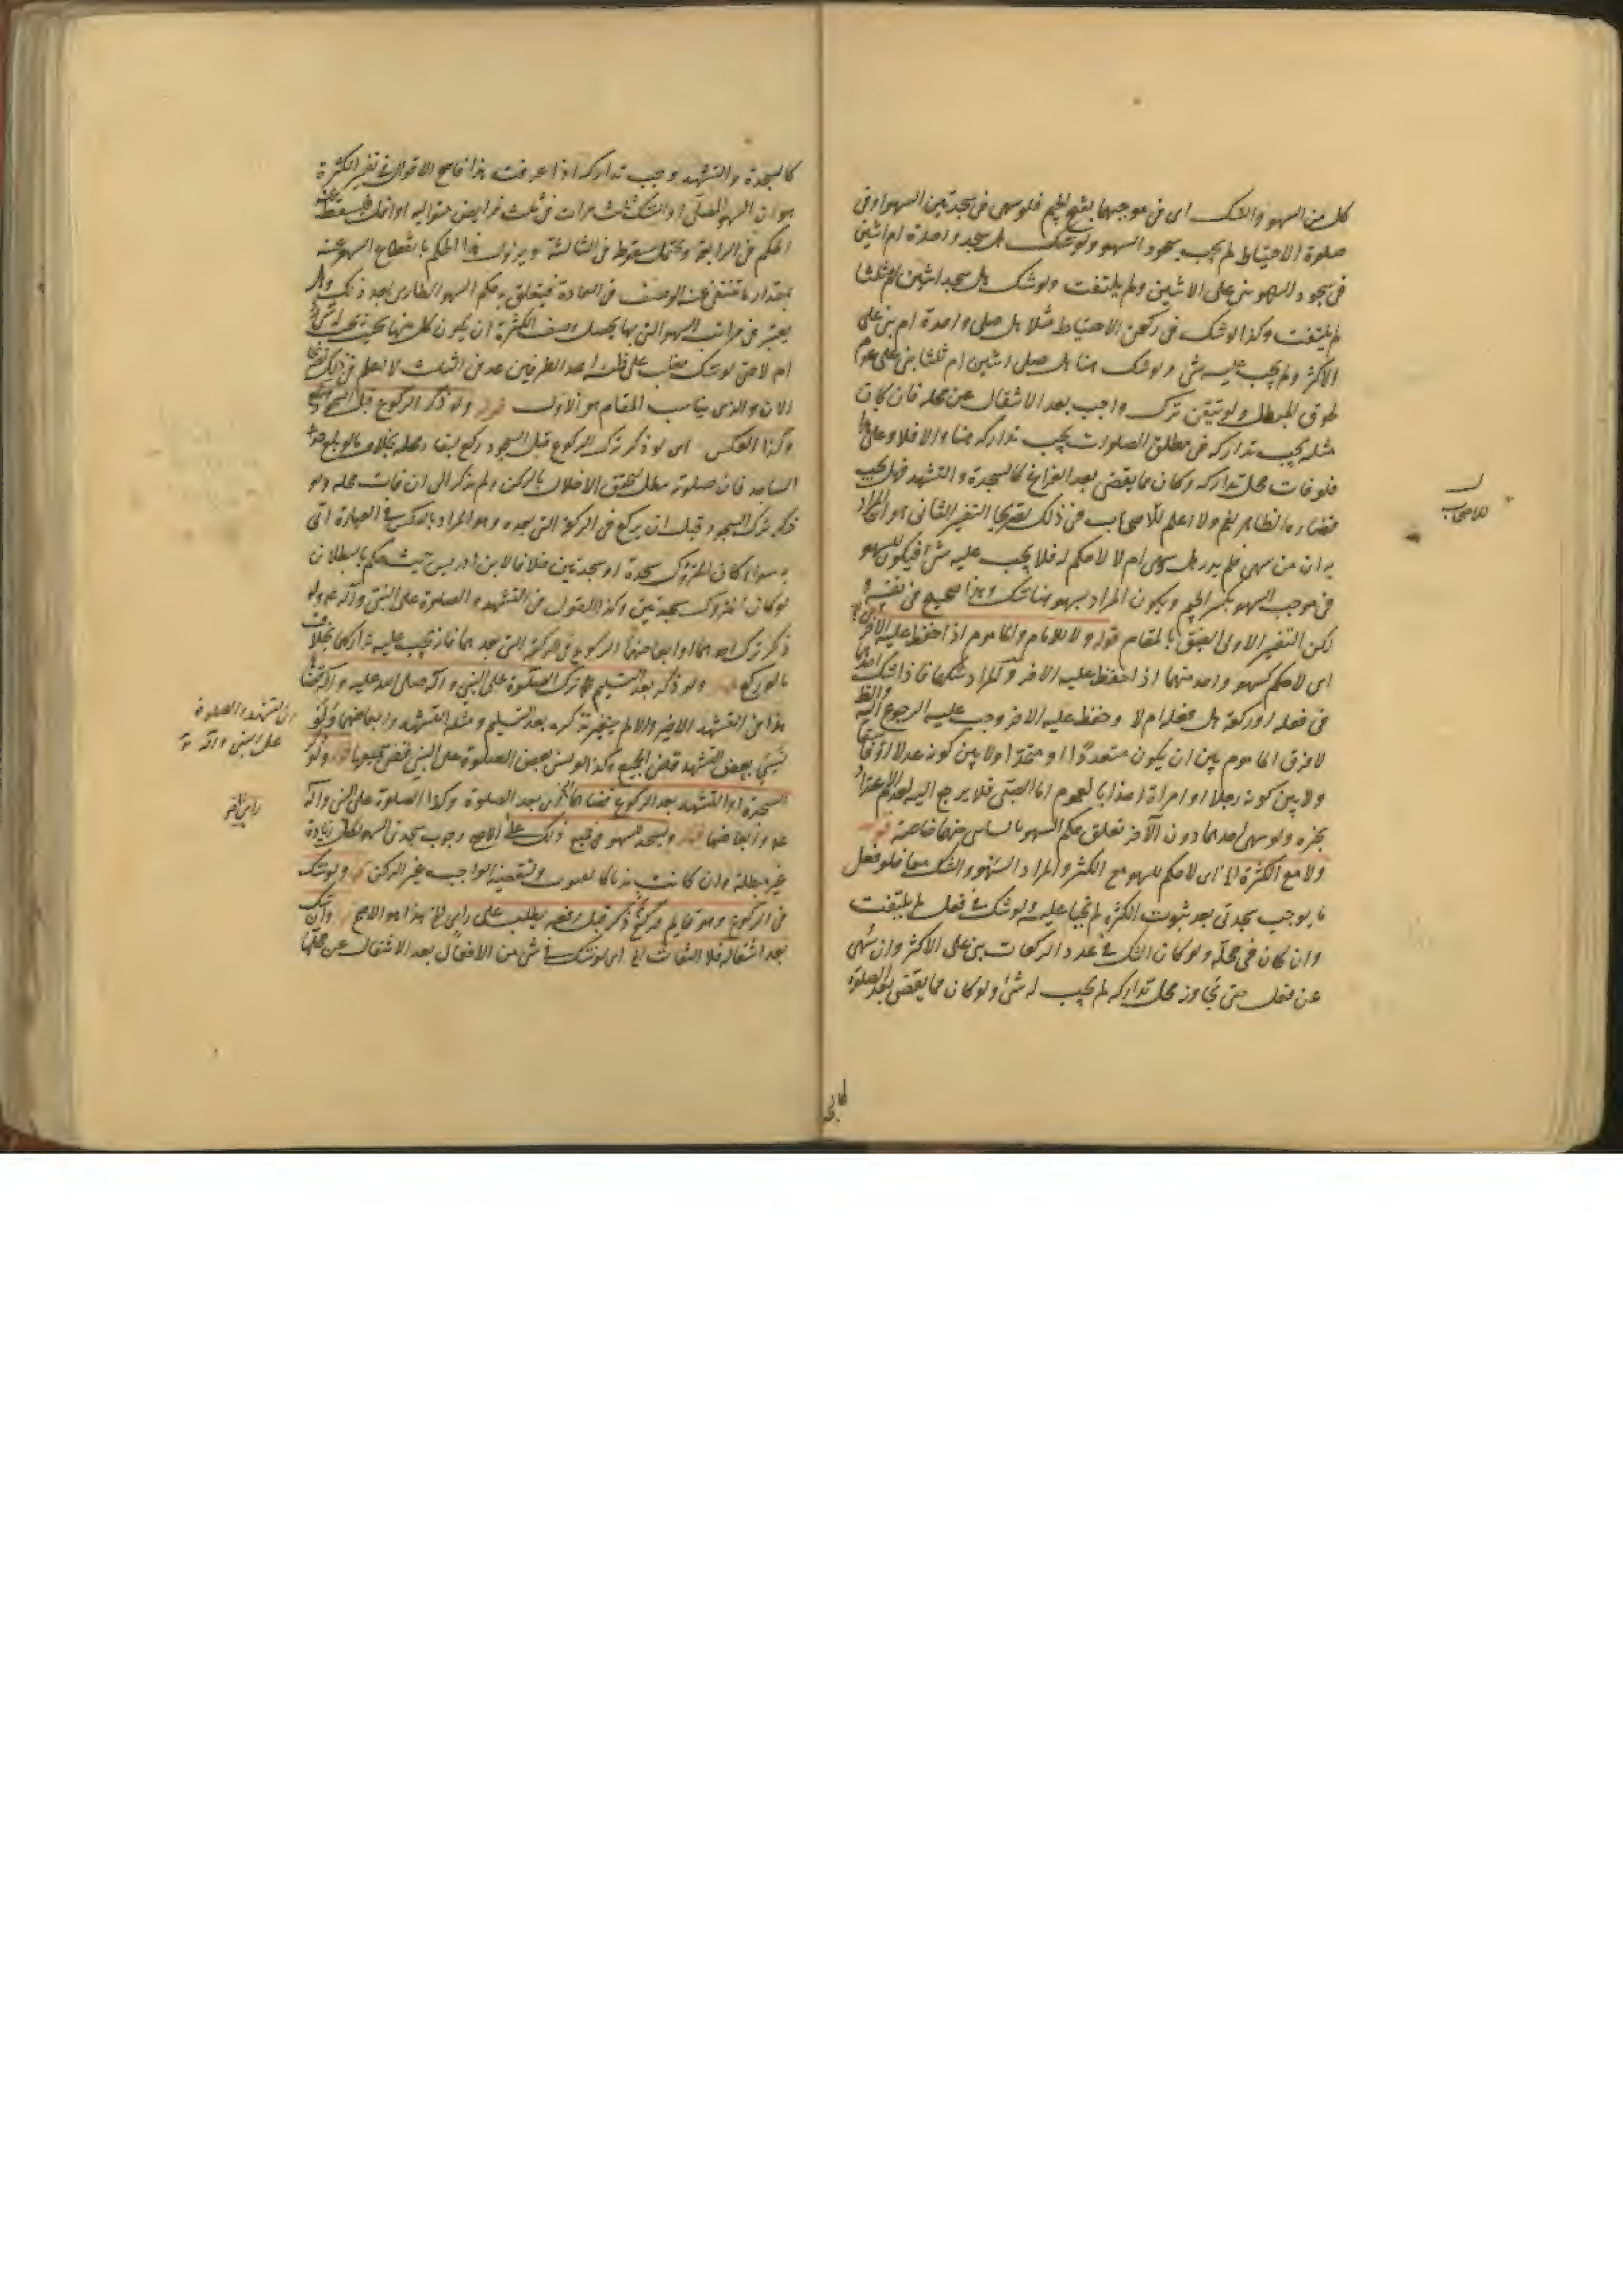 كل من السهو والشك اى فى موجبهما بفتح الجيم فلو سهى فى سجدتى السهو او فى
صلوة الاحتياط لم يجب سجود السهو ولو شك هل سجد واحدة ام اثنين
فى سجود السهو بنى على الاثنين ولم يلتفت ولو شك هل سجد اثنين ام ثلثا
لم يلتفت وكذا لو شك فى ركعتى الاحتياط مثلا هل صلى واحدة ام بنى على
الاكثر ولم يجب عليه شى ولو شك هنا هل صلى اثنين ام ثلثا بنى على
المبطل ولو تيقن ترك واجب بعد الانتقال عن محله فان كان
مثله يجب تداركه فى مطلق الصلوات يجب تداركه هنا والا فلا وعلى هذا
فلو فات محل تداركه وكان مما يقضى بعد الفراغ كالسجدة والتشهد فهل يجب
قضاءه الظاهر نعم ولا اعلم للاصحاب فى ذلك تصريحا التفسير الثانى هو المراد
به ان من سهى فلم يدر هل سهى ام لا لا حكم له فلا يجب عليه شئ فيكون للسهو
فى موجب السهو بكسر الجيم ويكون المراد بسهو هنا شك وهذا صحيح فى نفسه
لكن التفسير الاول اليق بالمقام قوله ولا للامام والماموم اذا حفظ عليه الآخر
اى لا حكم لسهو واحد منهما اذا حفظ عليه الاخر والمراد شكهما فاذا شك احدهما
فى فعله او ركعة هل فعله ام لا وحفظ عليه الاخر وجب عليه الرجوع اليه
لا فرق الماموم بين ان يكون متعددا او متحدا ولا بين كونه عدلا او فاسقا
ولا بين كونه رجلا او امراة اخذا بالعموم اما الصبى فلا يرجع اليه لعدم الاعتداد
بخبره ولو سهى احدهما دون الآخر تعلق حكم السهو بالساهى منهما خاصة قوله
ولا مع الكثرة اى لا حكم للسهو مع الكثرة والمراد السهو والشك معا فلو فعل
ما يوجب سجدتى بعد ثبوت الكثرة لم تجبا عليه ولو شك فى فعل لم يلتفت
وان كان فى محله ولو كان الشك فى عدد الركعات بنى على الاكثر وان سهى
عن فعل حتى تجاوز محل تداركه لم يجب له شئ ولو كان مما يقضى بعد الصلوة
للاصحاب
كالسجدة والتشهد وجب تداركه اذا عرفت هذا فاصح الاقوال فى تفسير الكثرة
هو ان السهو المصلى او الشك ثلث مرات فى ثلث فرايض متوالية فيسقط عنه
الحكم فى الرابعة ويحتمل سقوطه فى الثالثة ويزول هذا الحكم بانقطاع السهو عنه
بمقدار ما ينتفى عنه الوصف فى العادة فيتعلق به حكم السهو الطارى بعد ذلك وهل
يعتبر فى مراتب السهو التى بها يحصل وصف الكثرة ان يكون كل منها بحيث يجب
ام لا حتى لو شك فغلب على ظنه احد الطرفين عد من الثلث لا اعلم فى ذلك تصريحا
الان والذى يناسب المقام هو الاول قوله ولو ذكر الركوع قبل السجود
وكذا العكس اى لو ذكر ترك الركوع قبل السجود ركع لبقاء محله بخلاف ما لو بلغ حد
الساجد فان صلوته تبطل لتحقق الاخلال بالركن ولم يذكر الى ان فات محله ولو
ذكر ترك السجود قبل ان يركع فى الركعة التى بعده وهو المراد بالعكس فى العبارة اتى
به سواء كان المتروك سجدة او سجدتين خلافا لابن ادريس حيث حكم بالبطلان
لو كان المتروك سجدتين وكذا القول فى التشهد والصلوة على النبى وآله ولو
ذكر ترك احدهما او ابعاضهما الركوع فى الركعة التى بعدهما فانه يجب عليه تداركها بخلاف
ما لو ركع قوله ولو ذكر بعد التسليم ترك الصلوة على النبى وآله صلى الله عليه وآله قضاها
هذا فى التشهد الاخير والا لم ينحصر تذكره بعد التسليم ومثله التشهد وابعاضهما ولو
نسى بعض التشهد قضى الجميع وكذا لو نسى بعض الصلوة على النبى قضى جميعها قوله ولو
السجدة او التشهد بعد الركوع قضاهما بعد الصلوة وكذا الصلوة على النبى وآله
وابعاضها قوله ويسجد للسهو فى جميع ذلك على الاصح وجوب سجدتى السهو لكل زيادة
غير مبطلة وان كانت ندبا كالقنوت ولنقيصة الواجب غير الركن قوله ولو شك
فى الركوع وهو قايم فركع فذكر قبل رفعه يبطل على راى هذا هو الاصح قوله وان شك
بعد انتقاله فلا التفات اى لو شك فى شئ من الافعال بعد الانتقال عن محلها
اى التشهد والصلوة
على النبى وآله